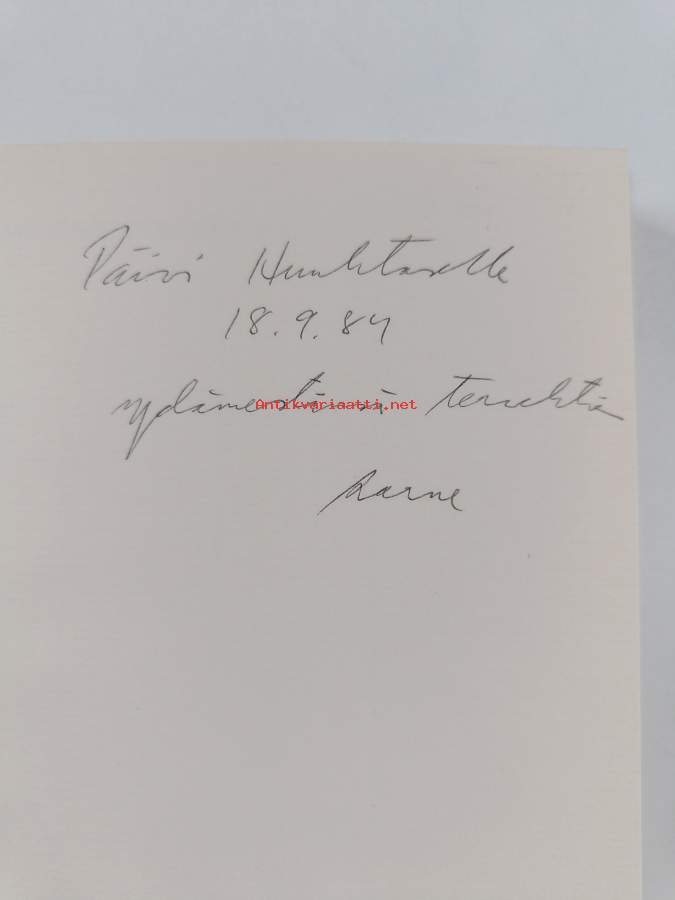 Päivi Huuhtaselle
18.9.84
sydämellisiä terveisiä
Antikvariaatti.net
Aarne